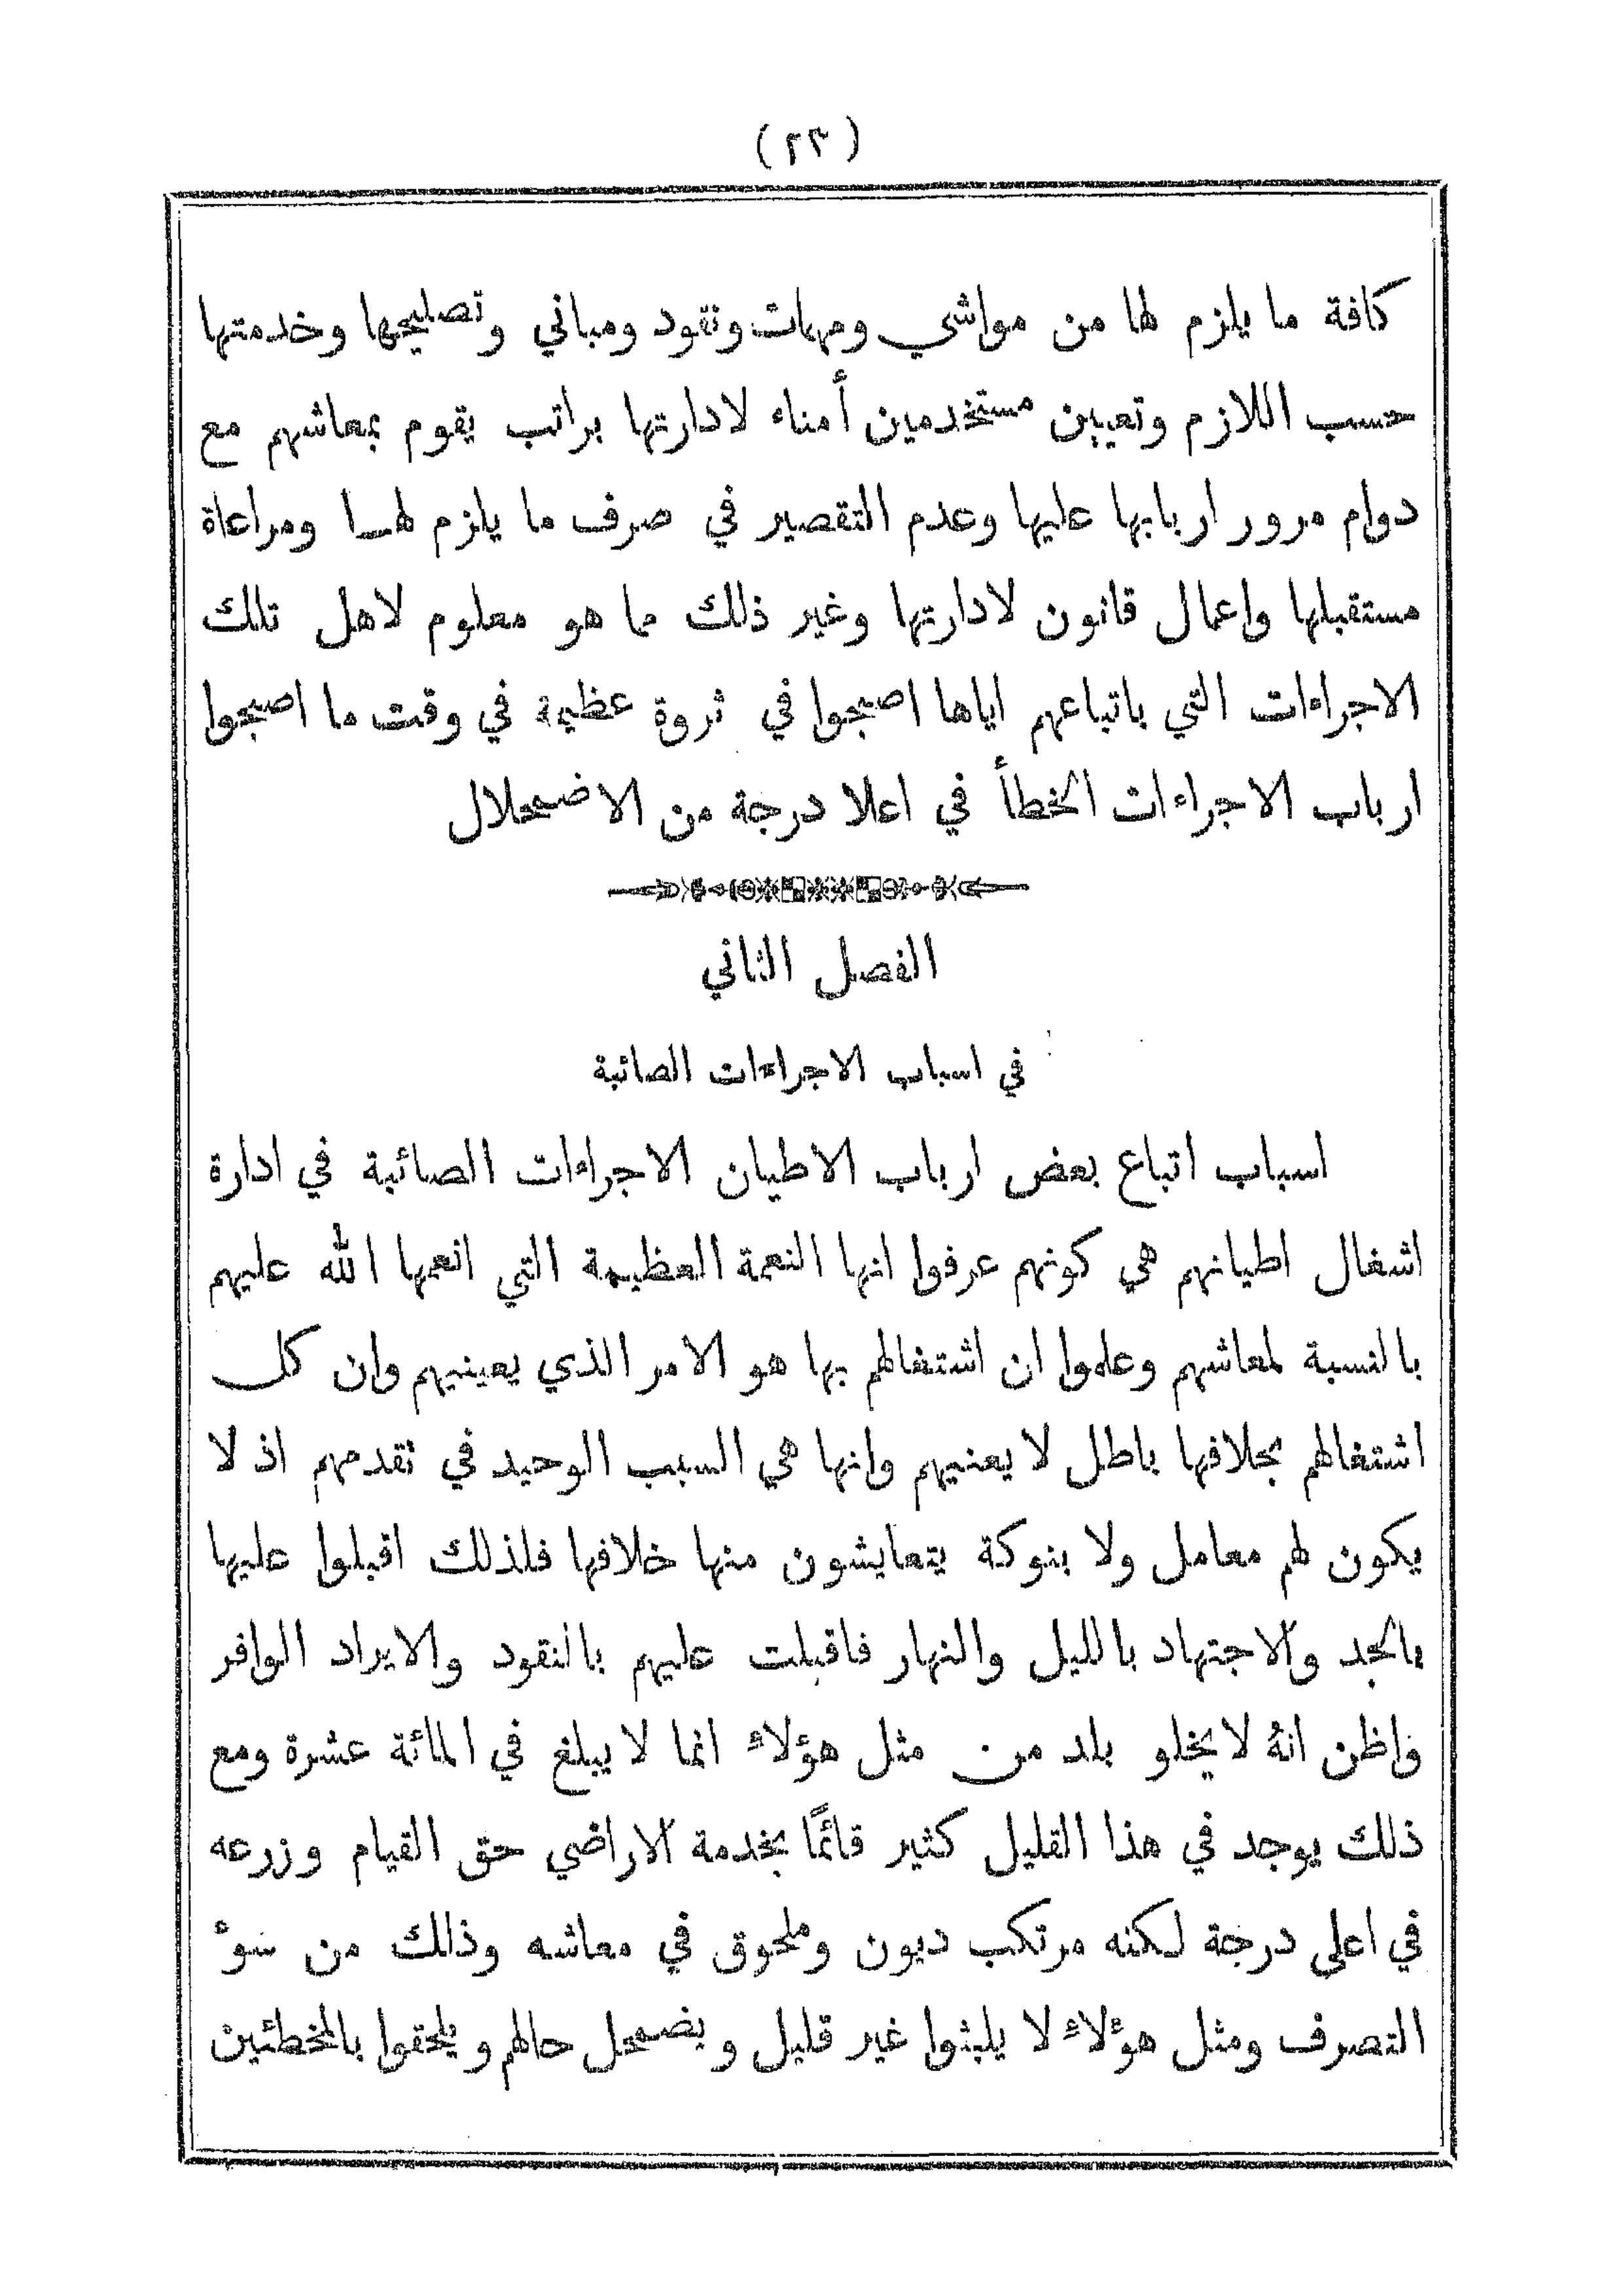 (٢٣)
كافة ما يلزم لها من مواشي ومهمات ونقود ومباني وتصليحها وخدمتها
حسب اللازم وتعيين مستخدمين أمناء لادارتها براتب يقوم بمعاشهم مع
دوام مرور اربابها عليها وعدم التقصير في صرف ما يلزم لهـا ومراعاة
مستقبلها واعمال قانون لادارتها وغير ذلك مما هو معلوم لاهل تلك
الاجراءات التي باتباعهم اياها اصبحوا في ثروة عظيمة في وقت ما اصبحوا
ارباب الاجراءات الخطأ في اعلا درجة من الاضمحلال
الفصل الثاني
في اسباب الاجراءات الصائبة
اسباب اتباع بعض ارباب الاطيان الاجراءات الصائبة في ادارة
اشغال اطيانهم هي كونهم عرفوا انها النعمة العظيمة التي انعمها الله عليهم
بالنسبة لمعاشهم وعلموا ان اشتغالهم بها هو الامر الذي يعينيهم وان كل
اشتغالهم بخلافها باطل لا يعنيهم وانها هي السبب الوحيد في تقدمهم اذ لا
يكون لهم معامل ولا بنوكة يتعايشون منها خلافها فلذلك اقبلوا عليها
بالجد والاجتهاد بالليل والنهار فاقبلت عليهم بالنقود والايراد الوافر
واظن انهُ لا يخلو بلد من مثل هؤلاء انما لا يبلغ في المائة عشرة ومع
ذلك يوجد في هذا القليل كثير قائمًا بخدمة الاراضي حق القيام وزرعه
في اعلى درجة لكنه مرتكب ديون وملحوق في معاشه وذالك من سوء
التصرف ومثل هؤلاء لا يلبثوا غير قليل ويضمحل حالهم ويلحقوا بالمخطئين